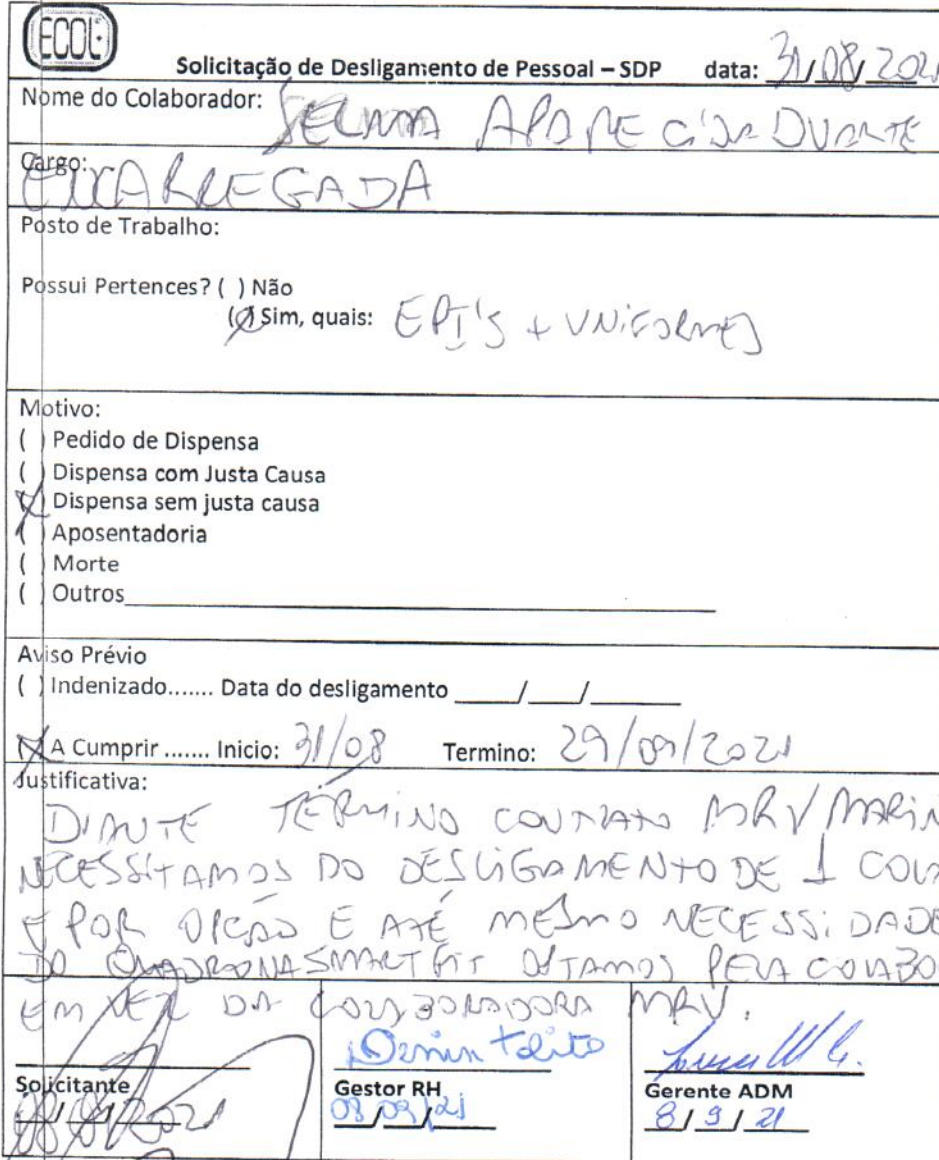 ECOL
Solicitação de Desligamento de Pessoal – SDP data: 31/08/2021
Nome do Colaborador: SELMA APARECIDA DUARTE
Cargo: ENCARREGADA
Posto de Trabalho:
Possui Pertences? ( ) Não
(X) Sim, quais: EPI'S + UNIFORMES
Motivo:
( ) Pedido de Dispensa
( ) Dispensa com Justa Causa
(X) Dispensa sem justa causa
( ) Aposentadoria
( ) Morte
( ) Outros
Aviso Prévio
( ) Indenizado....... Data do desligamento ___/___/___
(X) A Cumprir ....... Inicio: 31/08 Termino: 29/09/2021
Justificativa:
DIANTE TÉRMINO CONTRATO MRV/MARIN
NECESSITAMOS DO DESLIGAMENTO DE 1 COLA
E POR OPÇÃO E ATÉ MESMO NECESSIDADE
DO QUADRO NA SMART FIT OPTAMOS PELA COLABO
EM VEZ DA COLABORADORA MRV.
Solicitante Gestor RH Gerente ADM
08/09/2021 08/09/21 8/9/21